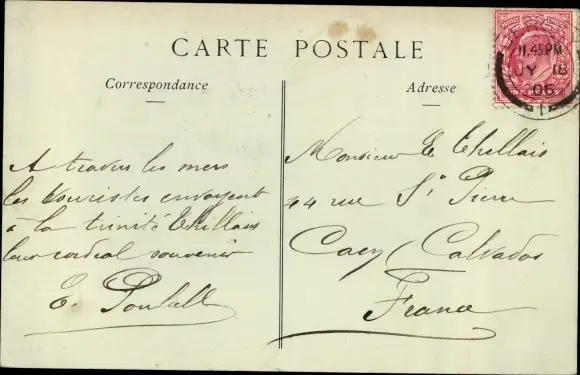 CARTE POSTALE
Correspondance
Adresse
11.45PM
JY 18
06
A travers les mers
les touristes envoyent
à la trinité Thillais
leur cordial souvenir
E.
Monsieur E Thillais
44 rue St Pierre
Caen Calvados
France